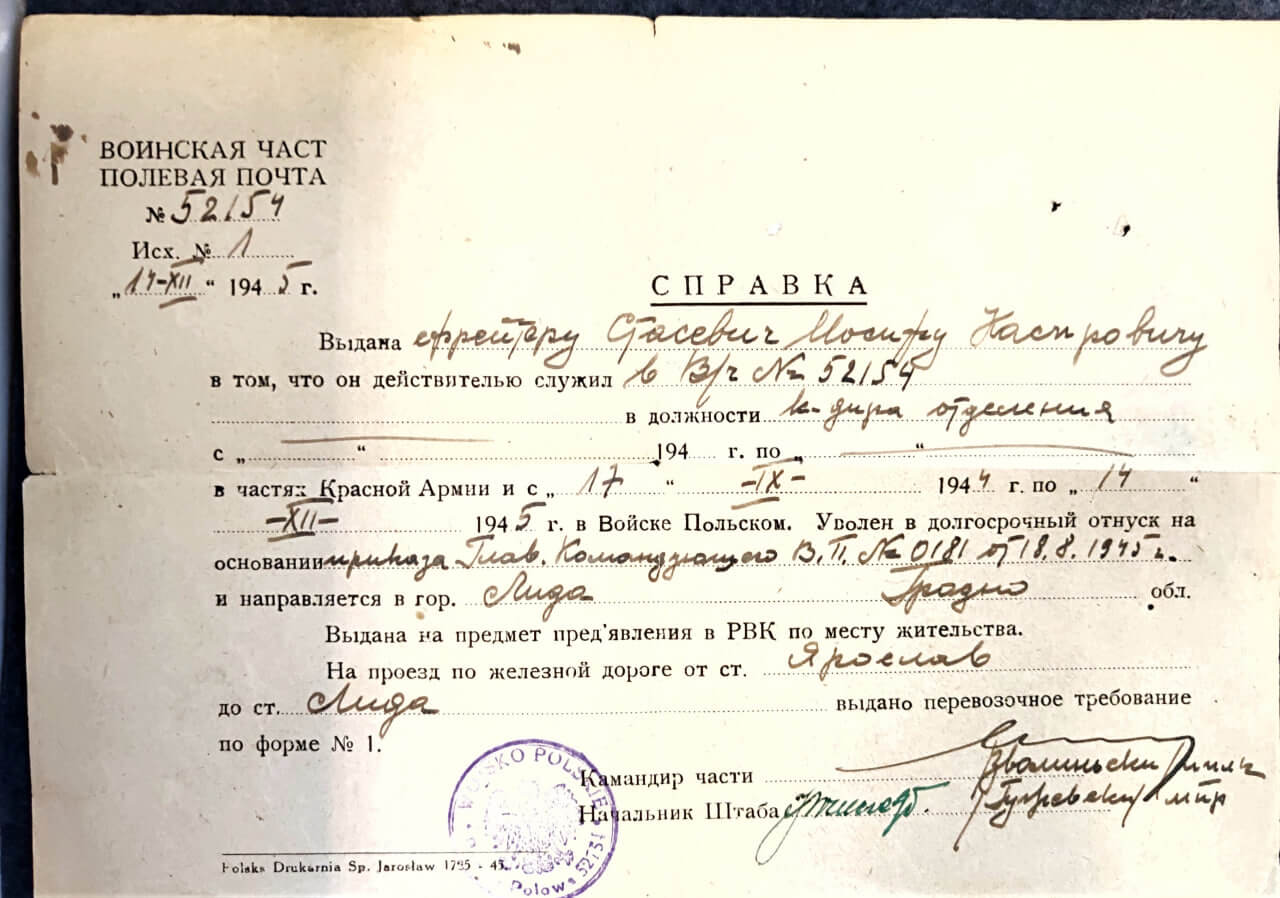 ВОИНСКАЯ ЧАСТ
ПОЛЕВАЯ ПОЧТА
№ 52154
Исх. № 1
„14-XII“ 1945 г.
СПРАВКА
Выдана ефрейтору Стасевич Иосифу Каспровичу
в том, что он действителью служил в В/ч № 52154
в должности к-дира отделения
с „ “ 194 г. по „ “
в частях Красной Армии и с „ 17 “ -IX- 1944 г. по „ 14 “
-XII- 1945 г. в Войске Польском. Уволен в долгосрочный отнуск на
основании приказа Глав. Командующего В.П. № 0181 от 18.8.1945 г.
и направляется в гор. Лида Гродно обл.
Выдана на предмет пред’явления в РВК по месту жительства.
На проезд по железной дороге от ст. Ярослав
до ст. Лида выдано перевозочное требование
по форме № 1.
Камандир части
Начальник Штаба
WOJSKO POLSKIE
Polowa 52154
Polska Drukarnia Sp. Jarosław 1795 - 45